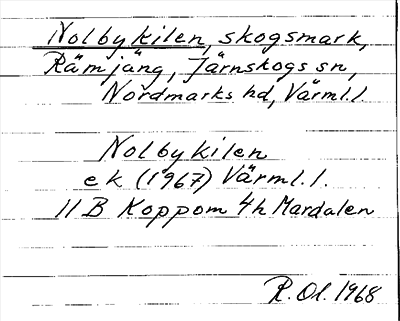 Nolbykilen, skogsmark,
Rämjäng, Järnskogs sn,
Nordmarks hd, Värml.l.
Nolbykilen
ek (1967) Värml.l.
11B Koppom 4h Mardalen
R.Ol. 1968